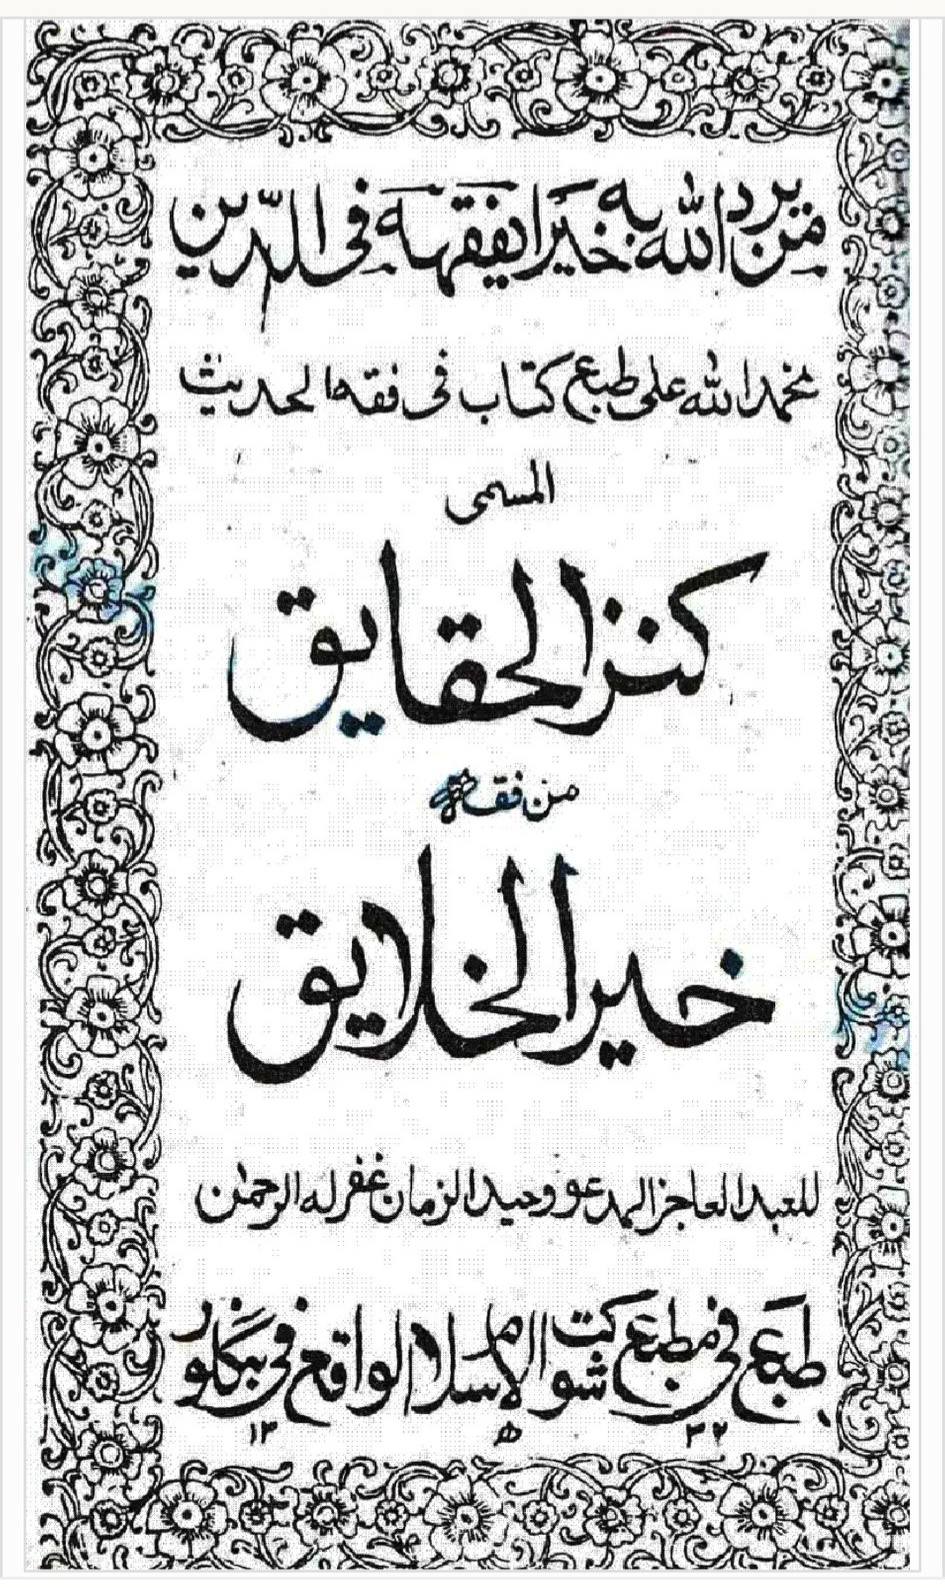 من يرد الله به خيرا يفقهه في الدين
نحمد الله على طبع كتاب في فقه الحديث
المسمى
كنز الحقايق
من فقه
خير الخلايق
للعبد العاجز المدعو وحيد الزمان غفر له الرحمن
طبع في مطبع شوكت الاسلام الواقع في بنگلور
١٣ ه ٣٢